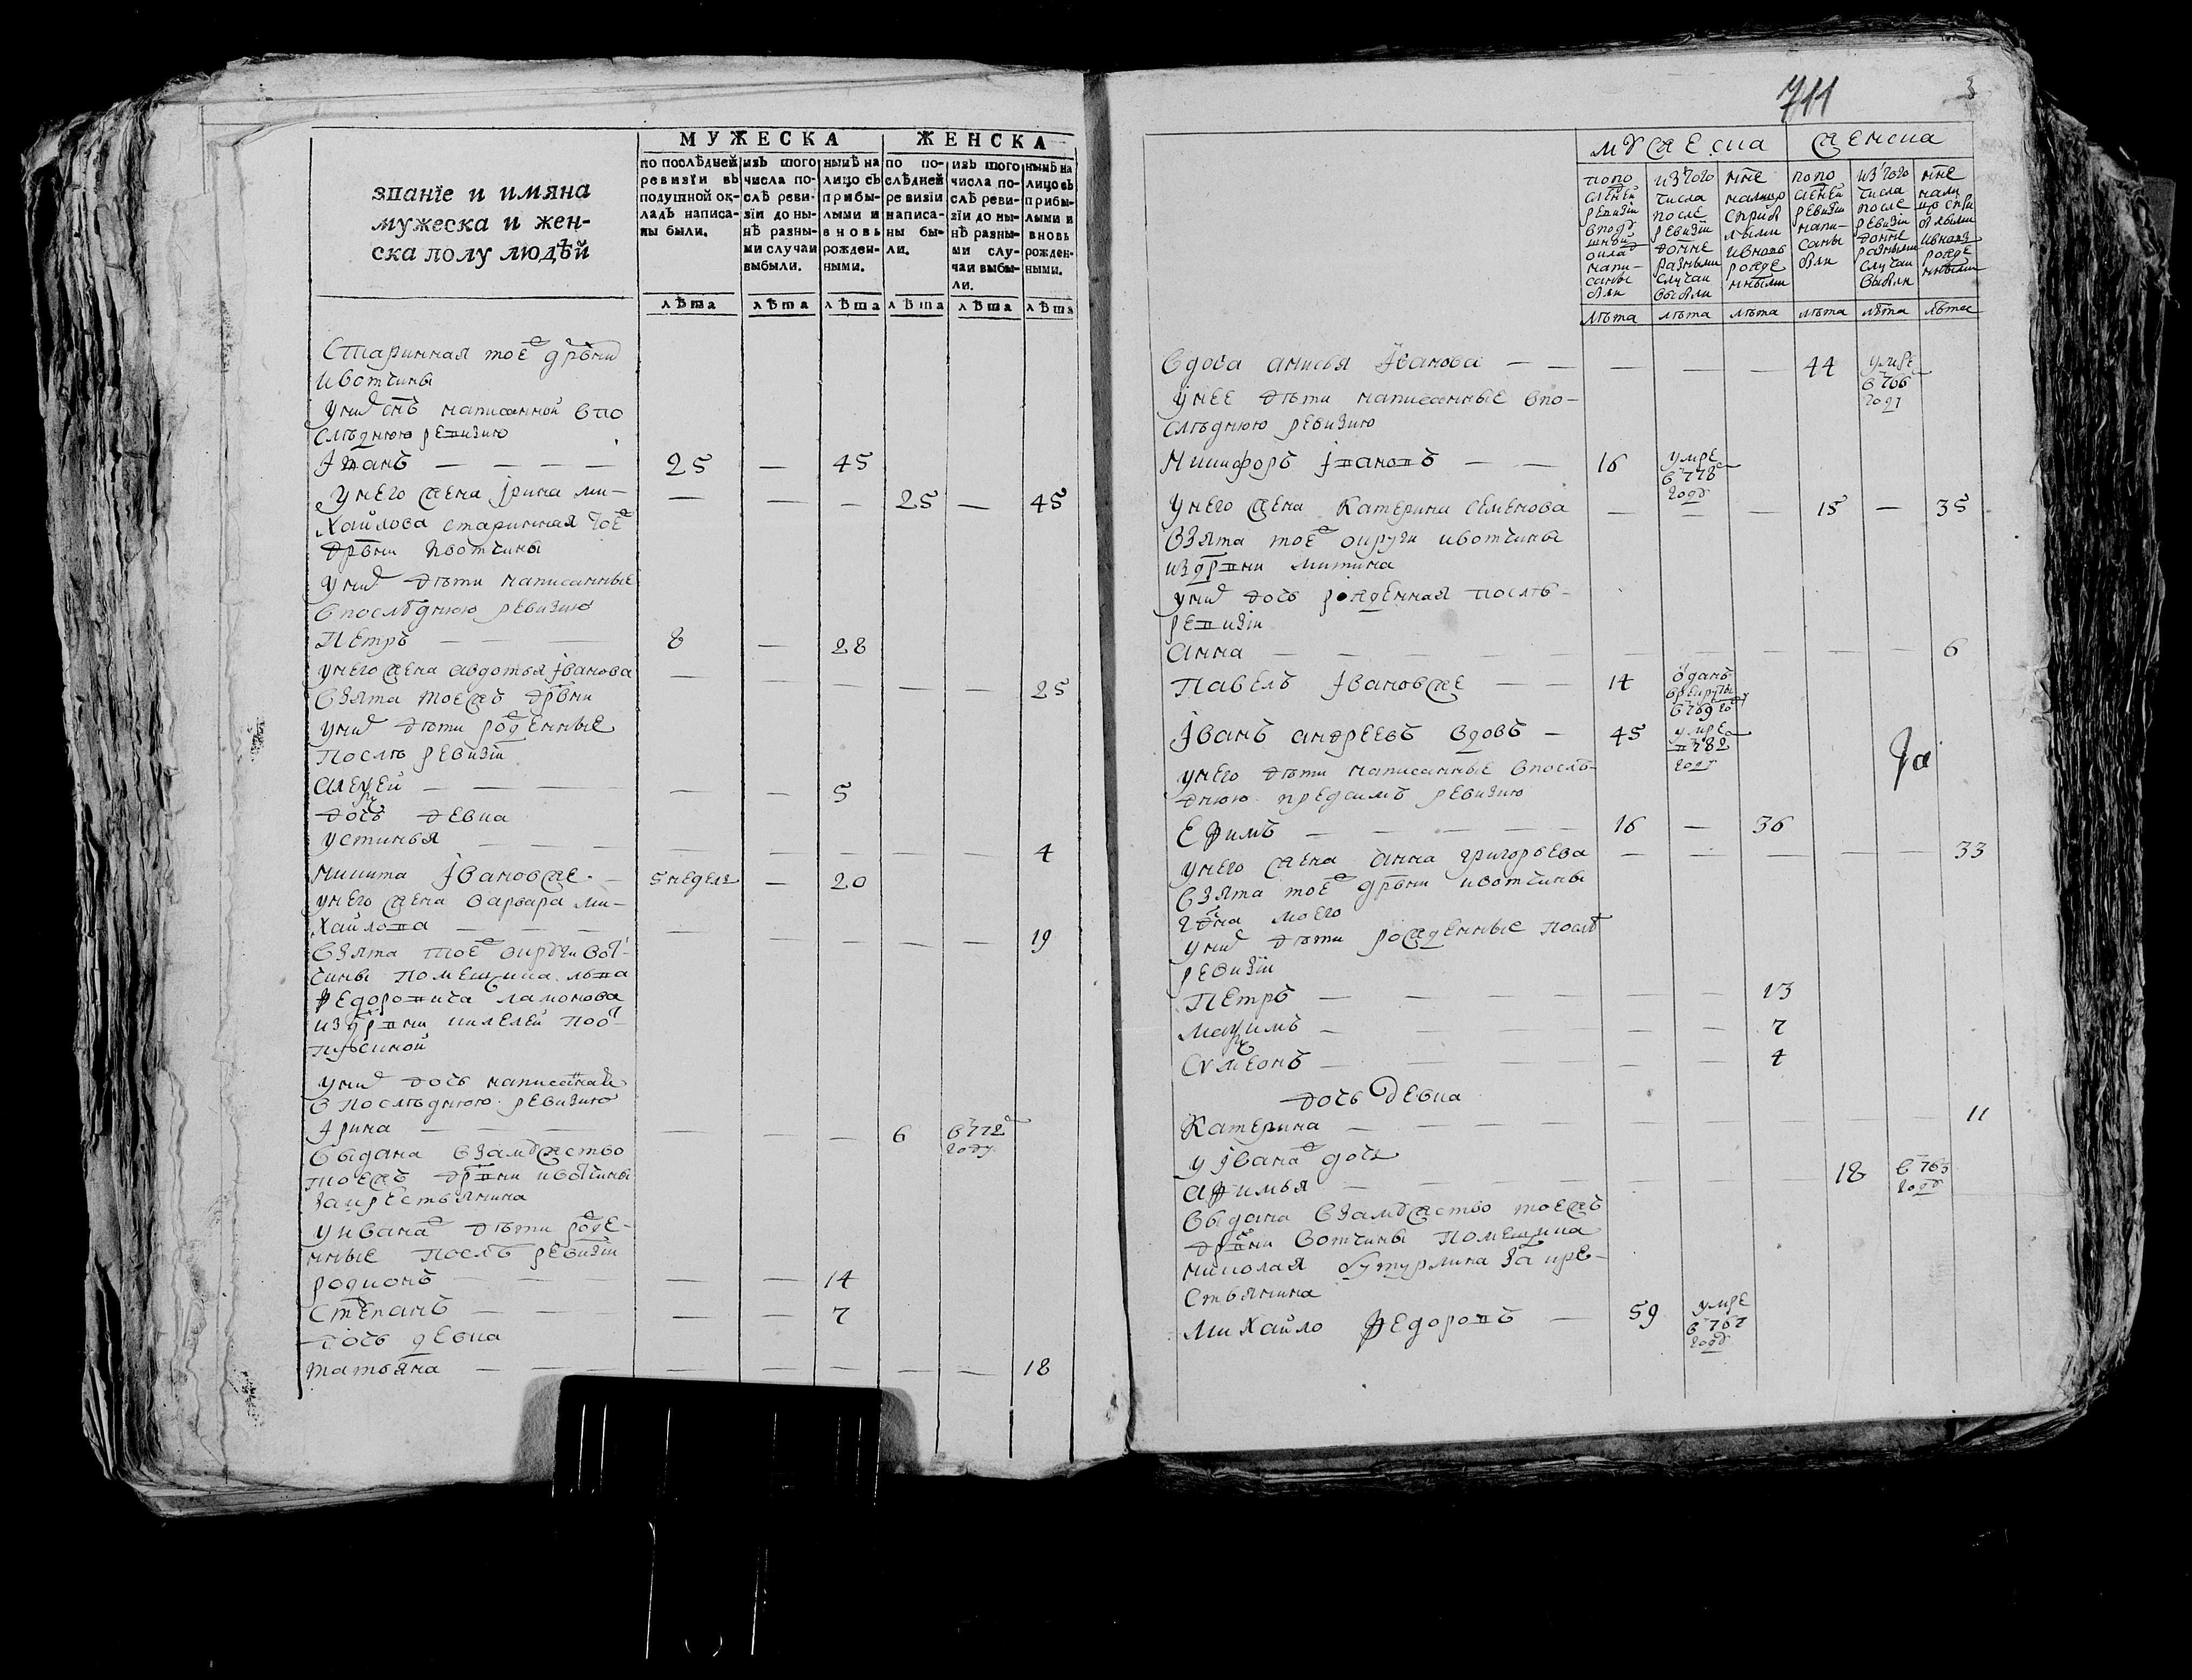 МУЖЕСКА
ЖЕНСКА
званїе и имяна
мужеска и жен-
ска полу людѣй
по послѣдней
ревизїи въ
подушной ок-
ладъ написа-
ны были.
изъ того
числа по-
слѣ реви-
зїи до ны-
нѣ разны-
ми случаи
выбыли.
нынѣ на
лицо съ
прибы-
лыми и
вновь
рожден-
ными.
по по-
слѣдней
ревизїи
написа-
ны бы-
ли.
изъ того
числа по-
слѣ реви-
зїи до ны-
нѣ разны-
ми слу-
чаи выбы-
ли.
нынѣ на
лицо съ
прибы-
лыми и
вновь
рожден-
ными.
лѣта лѣта лѣта лѣта лѣта лѣта
Старинная тоеж дрвни
ивотчины
унихъ снъ написанной впо
слѣднюю ревизию
Iванъ — — — — 25 — 45
унего жена Iрина ми- — — — 25 — 45
хайлова старинная тоеж
дрвни ивотчины
унихъ дѣти написанные
впослѣднюю ревизию
Петръ — — — 8 — 28
унего жена авдотья Iванова — — — — — 25
взята тоежъ дрвни
унихъ дѣти рожденные
послѣ ревизїи
алеѯей — — — — — 5
дочь девка
устинья — — — — — — — — 4
никита Iвановже — 5 недель — 20
унего жена варвара ми-
хайлова — — — — — — — — 19
взята тоеж округи вот-
чины помещика льва
Федоровича ламонова
издрвни
унихъ дочь написанная
впослѣднюю ревизию
Iрина — — — — — — 6 в 772 году
выдана взамужство
тоежъ дрвни ивотчины
закрестьянина
уиванаж дѣти рожде-
нные послѣ ревизїи
родионъ — — — — — 14
Степанъ — — — — — 7
дочь девка
татьяна — — — — — — — — 18
711
3
мужеска
женска
попо
слѣней
ревизїи
вподу
шной
окла
напи-
саны
были
изтого
числа
после
ревизїи
донне
разными
случаи
выбыли
нне
налицо
сприбы
лыми
ивновь
рожде
нными
попо
слѣней
ревизїи
напи-
саны
были
изтого
числа
после
ревизїи
донне
разными
случаи
выбыли
нне
нали
цо спри
былыми
ивновь
рожде
нными
лѣта лѣта лѣта лѣта лѣта лѣта
вдова анисья Iванова — — — — — 44 умре в 766 году
унее дѣти написанные впо-
слѣднюю ревизию
Никифоръ Iвановъ — — 16 умре в 778 году
унего жена Катерина семенова — — — 15 — 35
взята тоеж округи ивотчины
издрвни митина
унихъ дочь рожденная послѣ-
ревизїи
анна — — — — — — — — — 6
Павелъ Iвановже — — 14 отданъ врекруты в 769 году
Iванъ андреевъ вдовъ — 45 умре в 782 году
унего дѣти написанные впослѣ-
днюю предсимъ ревизию
Ефимъ — — — — — 16 — 36
унего жена анна григорьева — — — — — 33
взята тоеж дрвни ивотчины
гдна моего
унихъ дѣти рожденные послѣ
ревизїи
Петръ — — — — — — 13
Маѯимъ — — — — — — 7
Сѵмеонъ — — — — — — 4
дочь девка
Катерина — — — — — — — — 11
у Iванаж дочь
афимья — — — — — — — 18 в 763 году
выдана взамужство тоежъ
дрвни вотчины помещика
николая бутурлина за кре-
стьянина
Михайло Федоровъ — 59 умре в 767 году